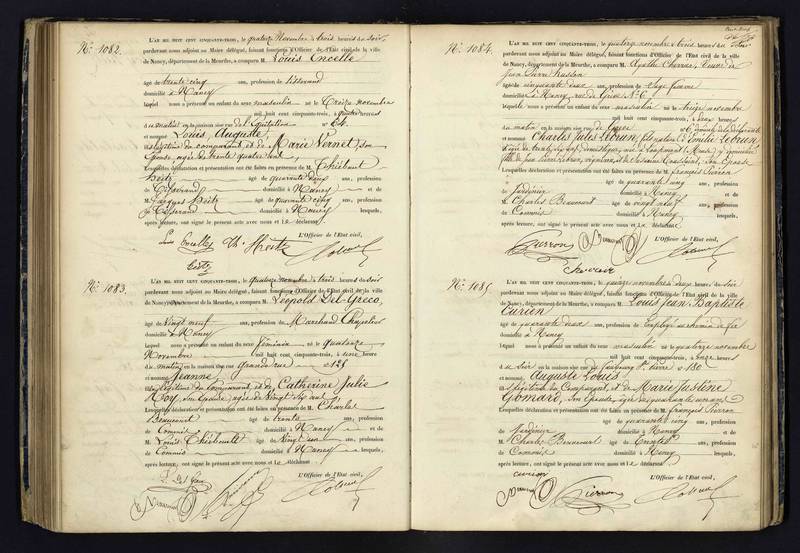 N.º 1082.
L'AN MIL HUIT CENT CINQUANTE-TROIS, le quatorze Novembre à trois heures du soir,
pardevant nous adjoint au Maire délégué, faisant fonctions d'Officier de l'État civil de la ville
de Nancy, département de la Meurthe, a comparu M. Louis Encelle
âgé de trente cinq ans, profession de Tisserand
domicilié à Nancy
lequel nous a présenté un enfant du sexe masculin né le Treize novembre
mil huit cent cinquante-trois, à quatre heures
du matin en la maison sise rue de l'équitation n.º 64.
et nommé Louis Auguste,
fils légitime du comparant et de Marie Vernet, son
épouse, âgée de trente quatre ans,
Lesquelles déclaration et présentation ont été faites en présence de M. Thiébaut
âgé de quarante ans, profession
de Tisserand domicilié à Nancy et de
M. Jacques âgé de quarante cinq ans, profession
de Tisserand domicilié à Nancy lesquels,
après lecture, ont signé le présent acte avec nous et le déclarant.
L'Officier de l'État civil,
N.º 1083.
L'AN MIL HUIT CENT CINQUANTE-TROIS, le quatorze novembre à trois heures du soir
pardevant nous adjoint au Maire délégué, faisant fonctions d'Officier de l'État civil de la ville
de Nancy, département de la Meurthe, a comparu M. Léopold Del-Greco,
âgé de vingt neuf ans, profession de Marchand Chapelier
domicilié à Nancy
lequel nous a présenté un enfant du sexe féminin né le quatorze
Novembre mil huit cent cinquante-trois, à une heure
du matin en la maison sise Grande rue n.º 125
et nommé Jeanne,
fille légitime du comparant, et de Catherine Julie
Roy, son épouse âgée de vingt six ans,
Lesquelles déclaration et présentation ont été faites en présence de M. Charles
Beaucourt âgé de trente ans, profession
de Commis domicilié à Nancy et de
M. Louis Thiébault âgé de vingt un ans, profession
de Commis domicilié à Nancy lesquels,
après lecture, ont signé le présent acte avec nous et le déclarant.
L'Officier de l'État civil,
N.º 1084.
L'AN MIL HUIT CENT CINQUANTE-TROIS, le quatorze novembre à trois heures du soir
pardevant nous adjoint au Maire délégué, faisant fonctions d'Officier de l'État civil de la ville
de Nancy, département de la Meurthe, a comparu M. Agathe veuve de
Jean Pierre
âgé de cinquante deux ans, profession de Sage femme
domiciliée à Nancy, rue de Grève N.º 6
laquelle nous a présenté un enfant du sexe masculin né le treize novembre
mil huit cent cinquante-trois, à deux heures
du matin en la maison sise rue de Grève n.º 6
et nommé Charles Jules Lebrun, Emilie Lebrun
Lesquelles déclaration et présentation ont été faites en présence de M. François Pierron
âgé de quarante cinq ans, profession
de Jardinier domicilié à Nancy et de
M. Charles Beaucourt âgé de vingt neuf ans, profession
de Commis domicilié à Nancy lesquels,
après lecture, ont signé le présent acte avec nous et la déclarante.
L'Officier de l'État civil,
N.º 1085.
L'AN MIL HUIT CENT CINQUANTE-TROIS, le quinze novembre à deux heures du soir
pardevant nous adjoint au Maire délégué, faisant fonctions d'Officier de l'État civil de la ville
de Nancy, département de la Meurthe, a comparu M. Louis Jean Baptiste
Curien
âgé de quarante deux ans, profession de Employé au chemin de fer
domicilié à Nancy
lequel nous a présenté un enfant du sexe masculin né le quatorze novembre
mil huit cent cinquante-trois, à onze heures
du soir en la maison sise rue du faubourg St. Pierre n.º 180
et nommé Auguste Louis
fils légitime du Comparant, et de Marie Justine
Gomard, son épouse, âgée de quarante un ans
Lesquelles déclaration et présentation ont été faites en présence de M. François Pierron
âgé de quarante cinq ans, profession
de Jardinier domicilié à Nancy et de
M. Charles Beaucourt âgé de trente ans, profession
de Commis domicilié à Nancy lesquels,
après lecture, ont signé le présent acte avec nous et le déclarant.
Curien
L'Officier de l'État civil,
Pierron